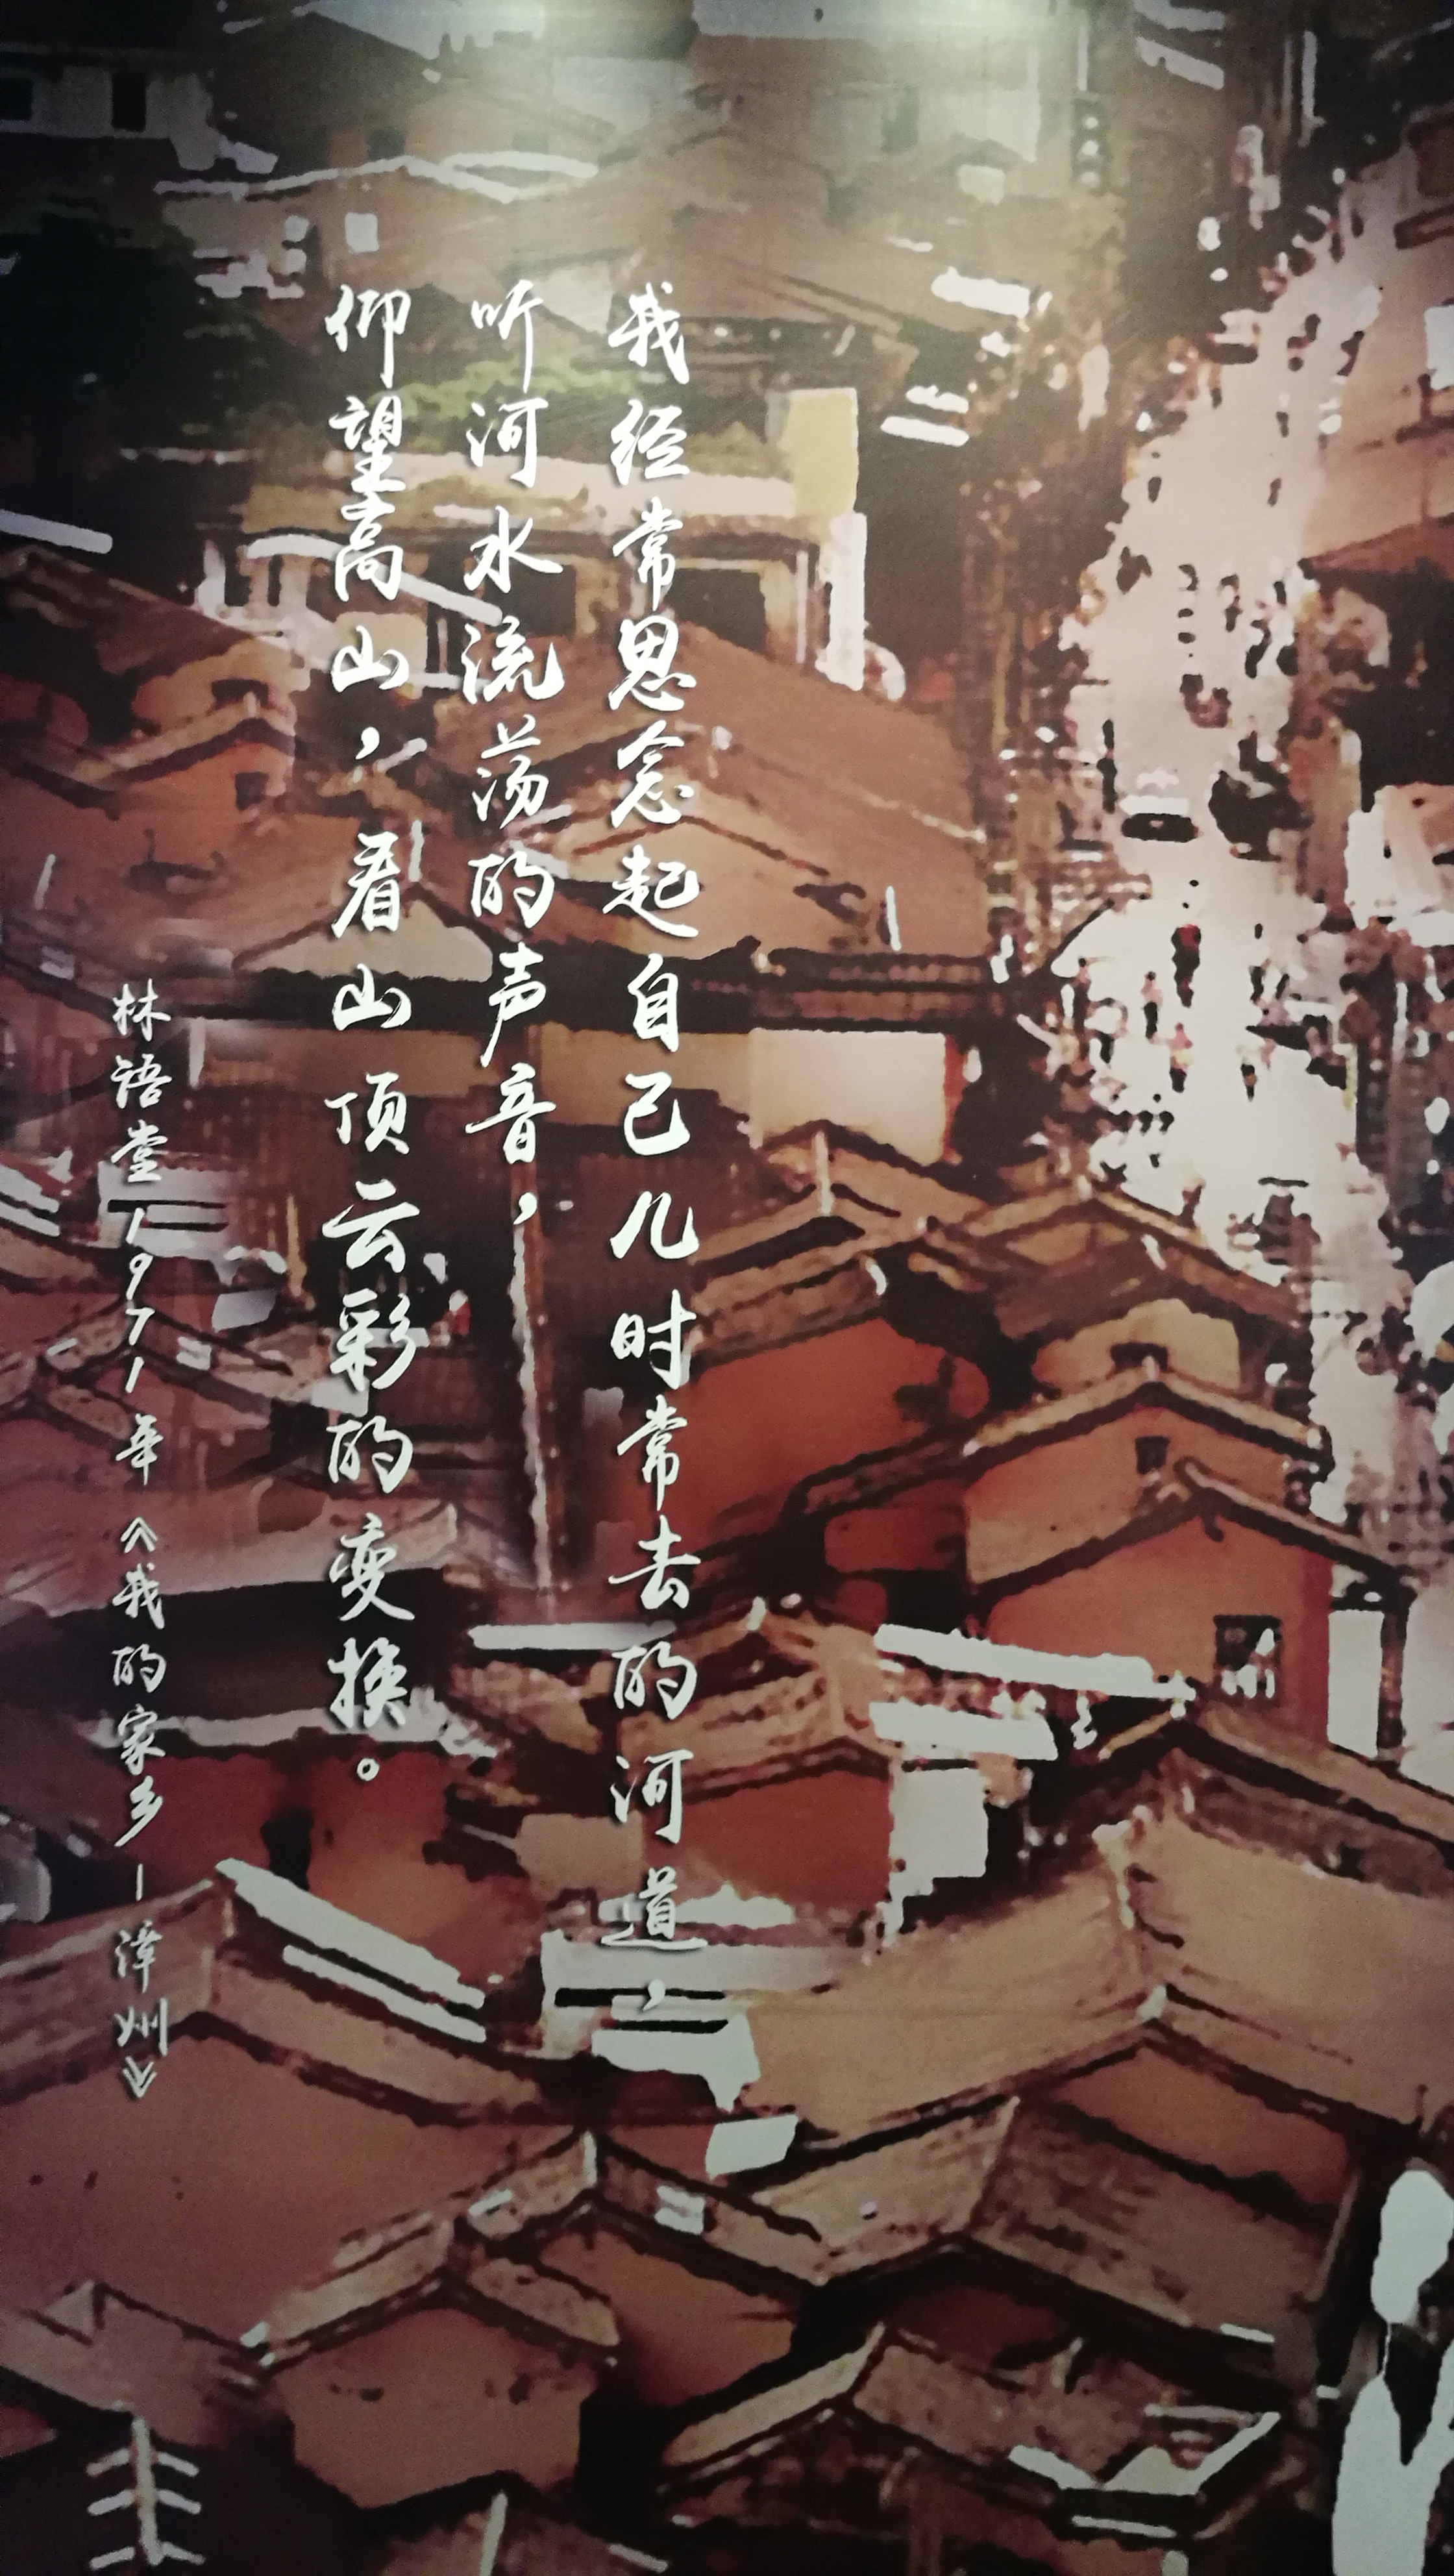 我经常思念起自己儿时常去的河道，
听河水流荡的声音，
仰望高山，看山顶云彩的变换。
林语堂1971年《我的家乡-漳州》